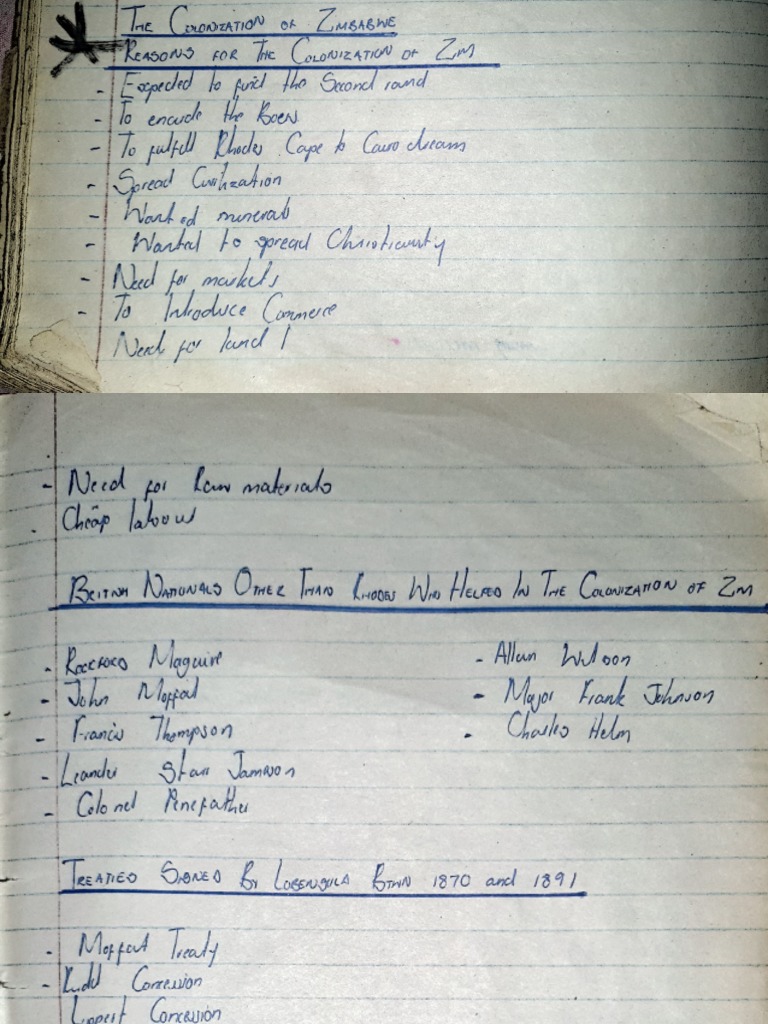 THE COLONIZATION OF ZIMBABWE
REASONS FOR THE COLONIZATION OF ZIM
- Expected to find the Second rand
- To encircle the Boers
- To fulfill Rhodes Cape to Cairo dream
- Spread Civilization
- Wanted minerals
- Wanted to spread Christianity
- Need for markets
- To Introduce Commerce
Need for land
- Need for Raw materials
- Cheap labour
BRITISH NATIONALS OTHER THAN RHODES WHO HELPED IN THE COLONIZATION OF ZIM
- Rochford Maguire
- John Moffat
- Francis Thompson
- Leander Starr Jameson
- Colonel Penefather
- Allan Wilson
- Major Frank Johnson
- Charles Helm
TREATIES SIGNED BY LOBENGULA BTWN 1870 and 1891
- Moffat Treaty
- Rudd Concession
Lippert Concession